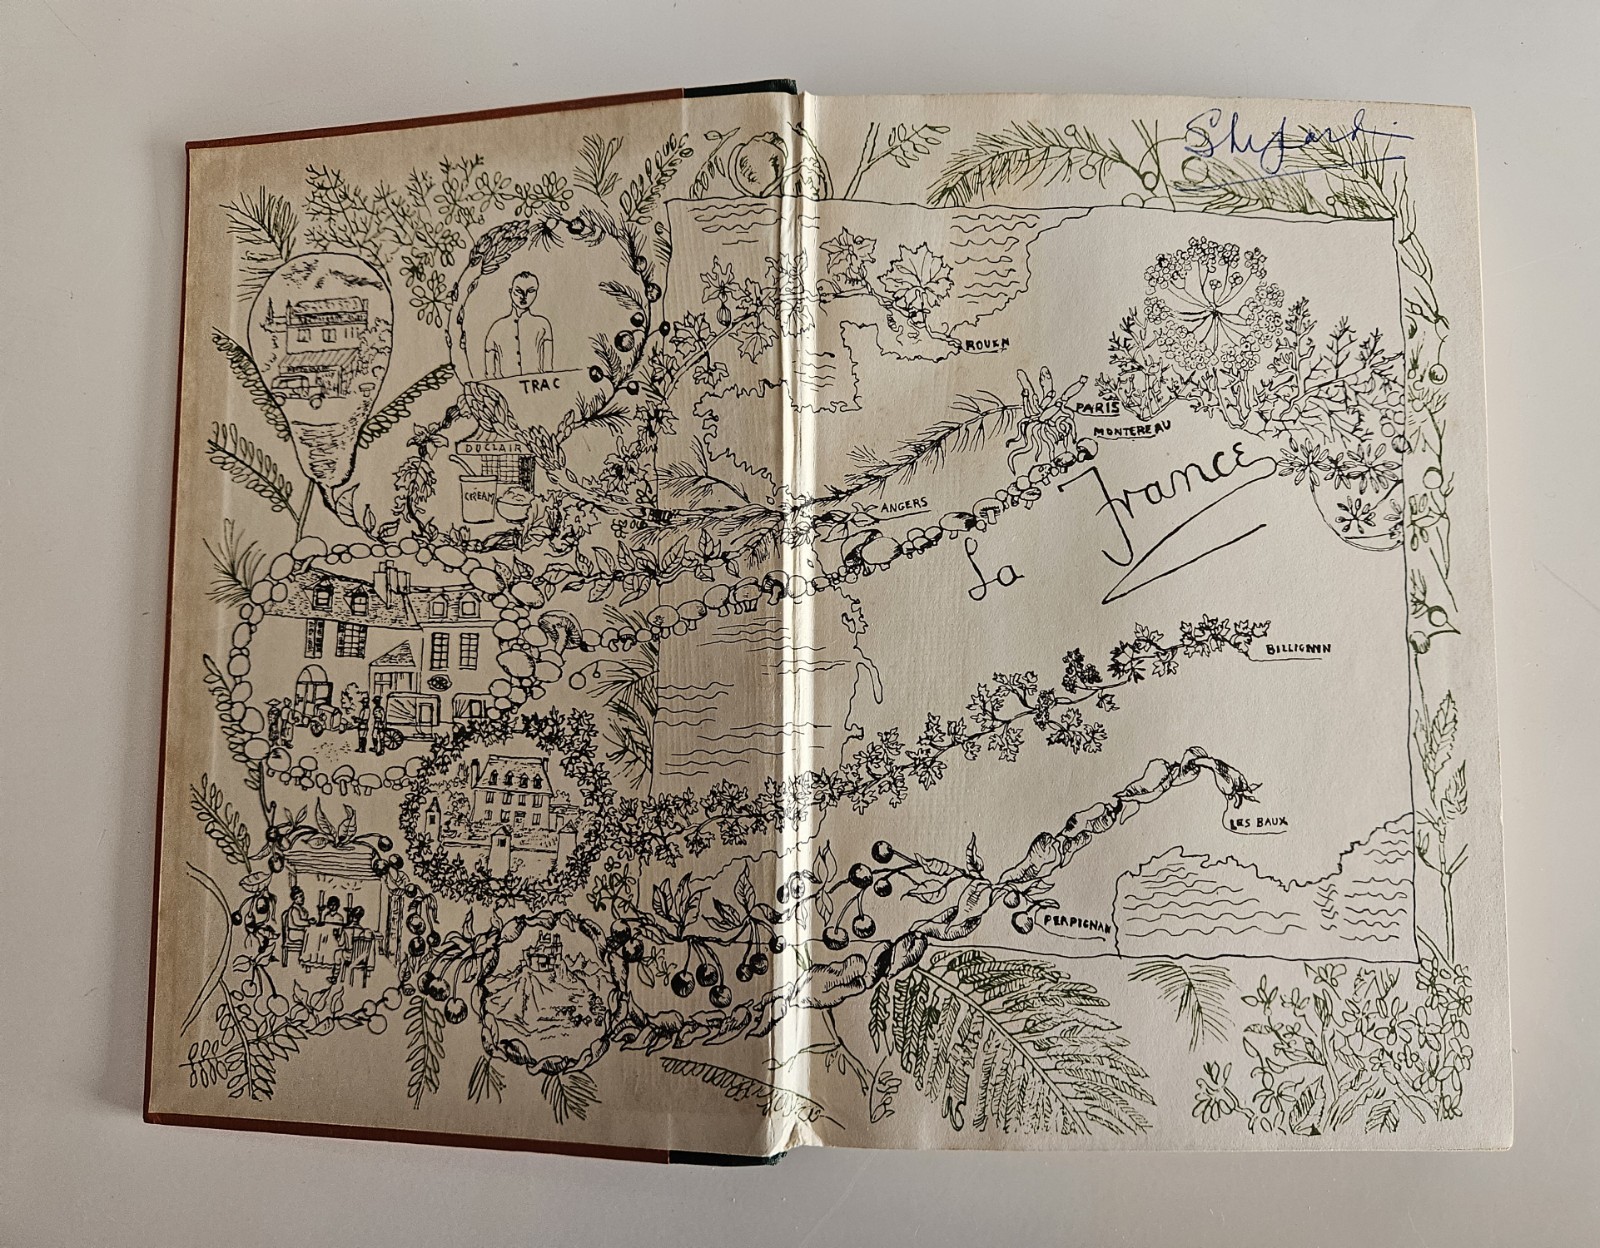 Shepard
TRAC
DUCLAIR
CREAM
ROUEN
PARIS
MONTEREAU
ANGERS
La France
BILLIGNIN
LES BAUX
PERPIGNAN